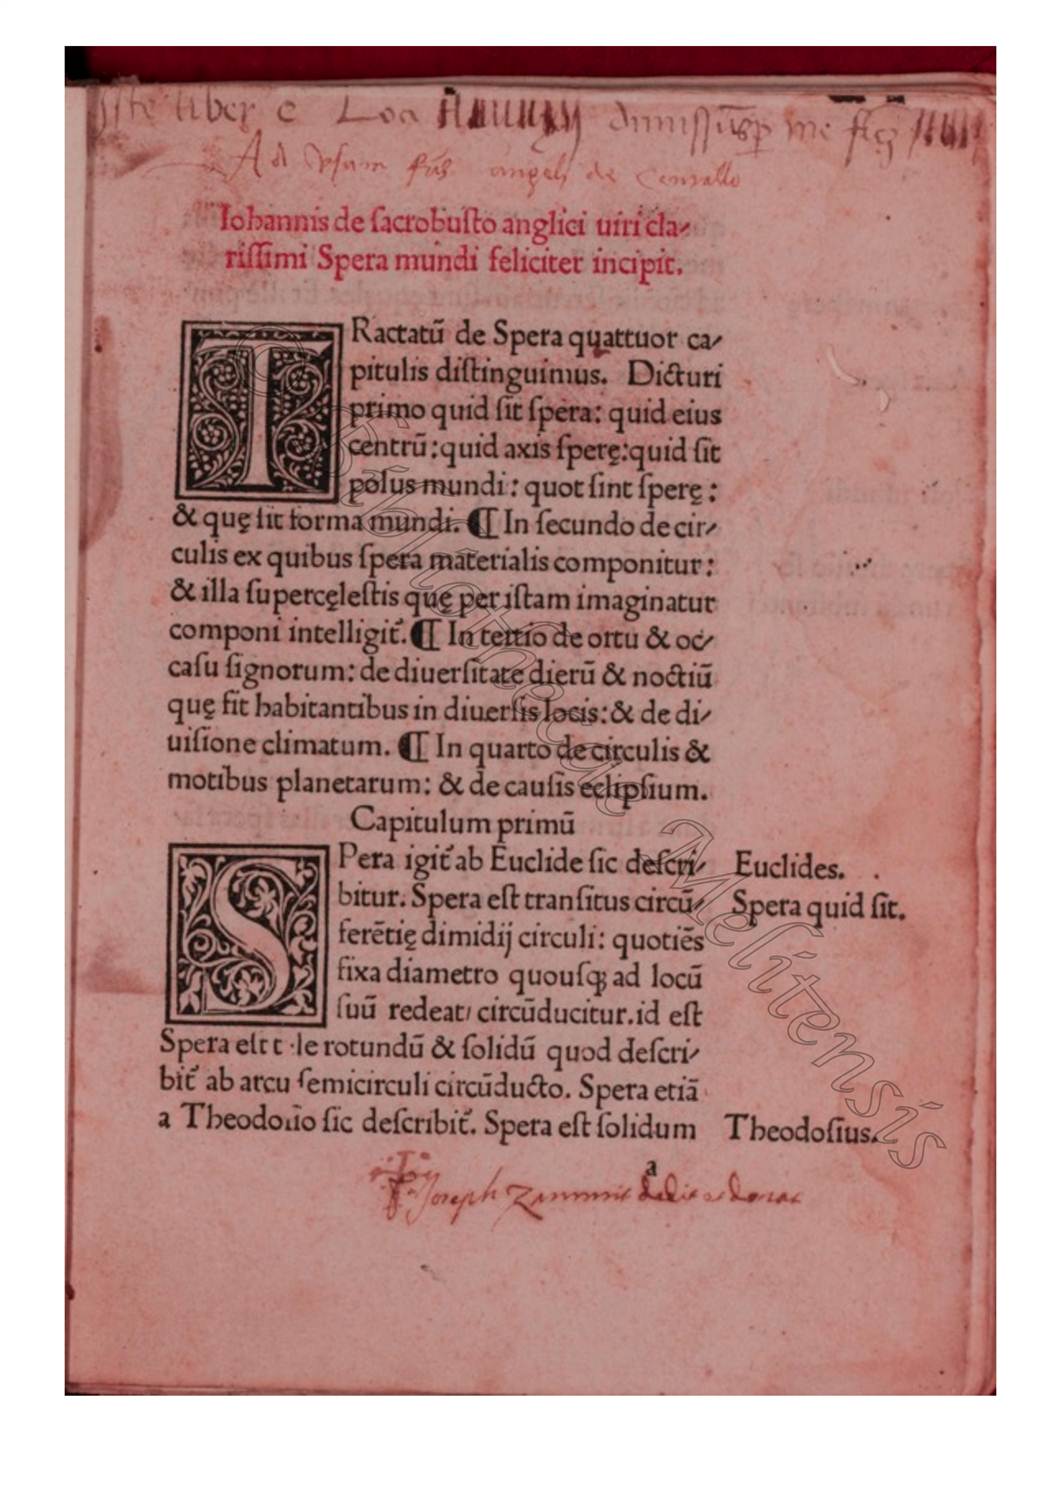 Iste liber e
Ad Vsum fris angeli de
Iohannis de sacrobusto anglici uiri cla⸗
rissimi Spera mundi feliciter incipit.
TRactatũ de Spera quattuor ca⸗
pitulis distinguimus. Dicturi
primo quid sit spera: quid eius
centrũ: quid axis sperę: quid sit
polus mundi: quot sint sperę:
& quę sit forma mundi. ¶ In secundo de cir⸗
culis ex quibus spera materialis componitur:
& illa supercęlestis quę per istam imaginatur
componi intelligit̃. ¶ In tertio de ortu & oc⸗
casu signorum: de diuersitate dierũ & noctiũ
quę fit habitantibus in diuersis locis: & de di⸗
uisione climatum. ¶ In quarto de circulis &
motibus planetarum: & de causis eclipsium.
Capitulum primũ
SPera igit̃ ab Euclide sic descri⸗
bitur. Spera est transitus circũ⸗
ferẽtię dimidij circuli: quotiẽs
fixa diametro quousqꝫ ad locũ
suũ redeat/ circũducitur. id est
Spera est tale rotundũ & solidũ quod descri⸗
bit̃ ab arcu semicirculi circũducto. Spera etiã
a Theodosio sic describit̃. Spera est solidum
Euclides.
Spera quid sit.
Theodosius.
a
Joseph Zammit dedit et donat
© Bibliotheca Melitensis